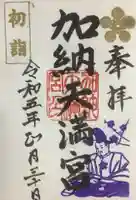 奉拝
加納天満宮
初詣
令和五年正月三十日